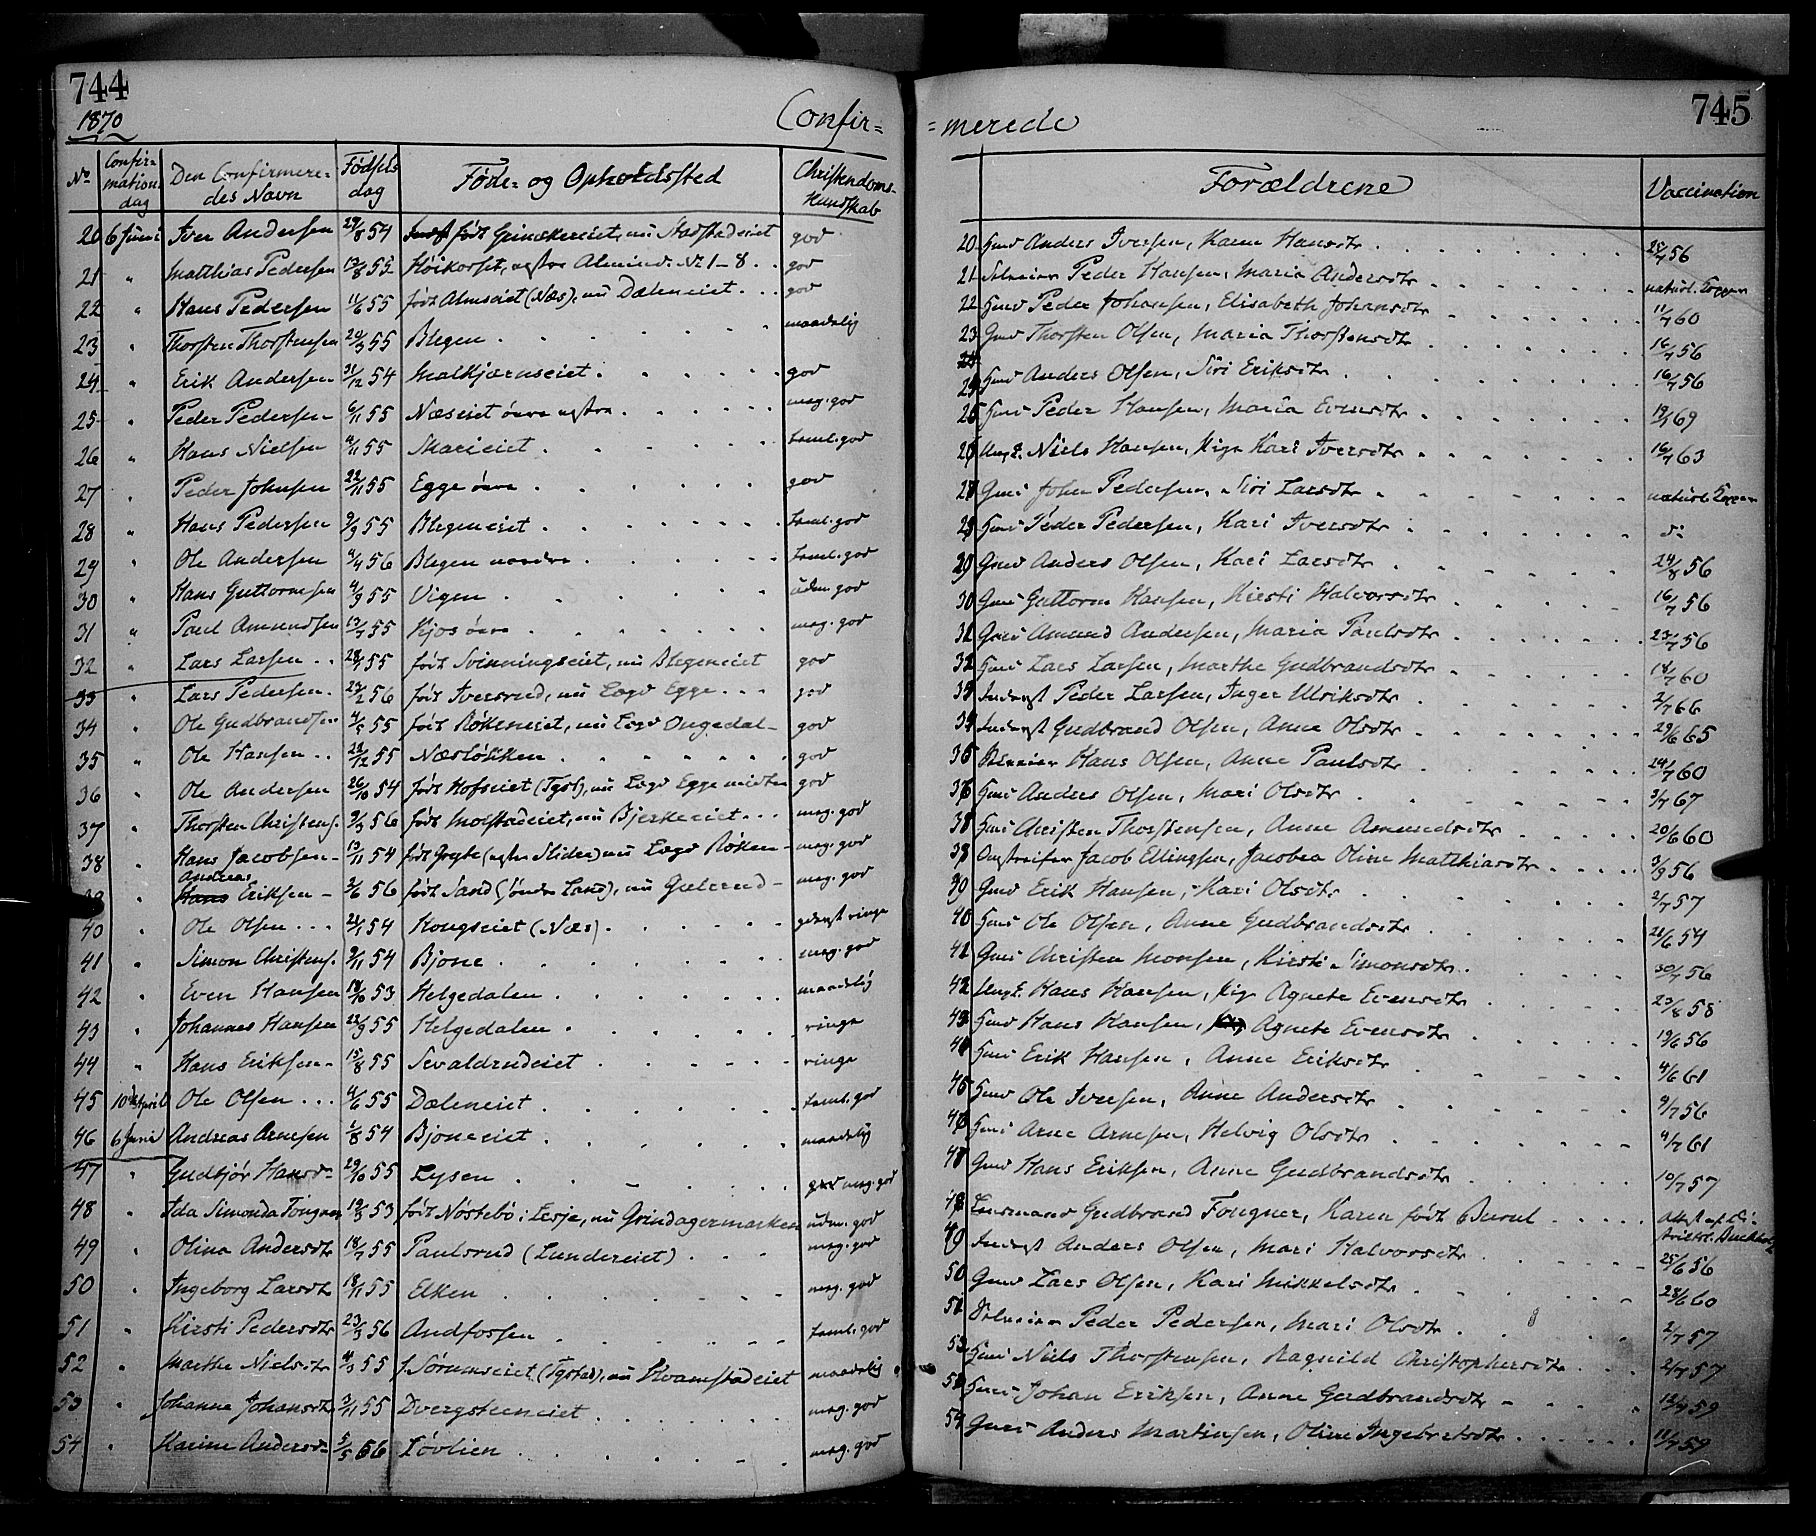 744
1870
Confir=
No Confir=mations dag Den Confirmere=des Navn Fødsels dag Føde= og Opholdssted Christendoms-Kundskab
20 6 Juni Iver Andersen 29/8 54 født Grinakereiet, nu Næsstadeiet god
21 " Matthias Pedersen 13/8 55 Høikorset, vestre Almind. No 1-8 . . god
22 " Hans Pedersen 11/6 55 født Almseiet (Næs), nu Dæleneiet . . . god
23 " Thorsten Thorstensen 20/3 55 Blegen . . . maadelig
24 " Erik Andersen 31/12 54 Malkjærnseiet . . . god
25 " Peder Pedersen 6/11 55 Næseiet øvre vestre . . . meg. god
26 " Hans Nielsen 4/11 55 Skarieiet . . . teml. god
27 " Peder Johnsen 22/11 55 Egge øvre . . . god
28 " Hans Pedersen 9/3 55 Blegeneiet . . . teml. god
29 " Ole Andersen 4/4 56 Blegen nordre . . . teml. god
30 " Hans Guttormsen 4/3 55 Vigen . . . udm. god
31 " Paul Amundsen 13/7 55 Kjos øvre . . . meg. god
32 " Lars Larsen . . 28/1 55 født Svinningseiet, nu Blegeneiet god
33 " Lars Pedersen . 23/2 56 født Iversrud, nu Lægd Egge . . . god
34 " Ole Gudbrandsen 4/5 55 født Røkeneiet, nu Lægd Ongedal - god
35 " Ole Hansen . . 28/12 55 Næsløkken . . . god
36 " Ole Andersen 26/10 54 født Hofseiet (Tgst), nu Lægd Egge midtre god
37 " Thorsten Christens. 9/3 56 født Molstadeiet, nu Bjerkeeiet . . . meg. god
38 " Hans Jacobsen - 13/11 54 født Gryte (vestre Slidre) nu Lægd Røken - meg. god
39 " Andreas Eriksen - 3/6 56 født Sand (Søndre Land), nu Gælerud - meg. god
40 " Ole Olsen . . . 21/1 54 Kongseiet (Næs) . . . yderst ringe
41 " Simon Christens. 9/11 54 Bjone . . . meg. god
42 " Even Hansen 18/10 53 Helgedalen . . . maadelig
43 " Johannes Hansen 22/9 55 Helgedalen . . . ringe
44 " Hans Eriksen - 15/8 55 Sevaldrudeiet . . . ringe
45 10de April Ole Olsen . . . 4/6 55 Dæleneiet . . . teml. god
46 6 Juni Andreas Arnesen 1/8 54 Bjoneeiet . . . maadelig
47 " Gudbjør Hansd. 29/10 55 Lysen . . . meg. god
48 " Ida Simonda Fougner 19/3 53 født Nøstebø i Lesje, nu Grindagermarken udm. god
49 " Olina Andersdtr 18/7 55 Paulsrud (Lundereiet) . . . meg. god
50 " Ingeborg Larsdtr 18/11 55 Elken . . . meg. god
51 " Kirsti Pedersdtr 23/3 56 Andfossen . . . teml. god
52 " Marthe Nielsdtr 4/3 55 f. Sørumseiet (Tgstad), nu Kvamstadeiet maadelig
53 " Johanne Johansdtr 3/11 55 Dvergsteneiet . . . meg. god
54 " Karine Andersd. 5/5 56 Løvlien . . . meg. god
745
=merede
Forældrene Vaccination
20 Husm Anders Iversen, Karen Hansdtr . . . 25/7 56
21 Selveier Peder Hansen, Maria Andersdtr . . . naturl. Kopper
22 Husm Peder Johansen, Elisabeth Johansdtr . . . 11/7 60
23 Gmd Thorsten Olsen, Maria Thorstensdtr . . . 16/7 56
24 Husm Anders Olsen, Siri Eriksdtr . . . 16/7 56
25 Husm Peder Hansen, Maria Evensdtr . . . 19/7 69
26 Ungk. Niels Hansen, Pige Kari Iversdtr . . . 16/7 63
27 Gmd John Pedersen, Siri Larsdtr . . . naturl. Kopper
28 Husm Peder Pedersen, Kari Iversdtr . . .
29 Gmd Anders Olsen, Kari Larsdtr . . . 24/8 56
30 Gmd Guttorm Hansen, Kirsti Halvorsdtr . . . 16/7 56
31 Gmd Amund Andersen, Maria Paulsdtr . . . 23/7 56
32 Husm Lars Larsen, Marthe Gudbrandsdtr . . . 18/7 60
33 Inderst Peder Larsen, Inger Ulriksdtr . . . 2/7 66
34 Inderst Gudbrand Olsen, Anne Olsdtr . . . 29/6 65
35 Selveier Hans Olsen, Anne Paulsdtr . . . 24/7 60
36 Husm Anders Olsen, Mari Olsdtr . . . 3/7 67
37 Husm Christen Thorstensen, Anne Amundsdtr . . . 20/6 60
38 Omstreifer Jacob Ellingsen, Jacobea Oline Matthiasdtr . . . 3/9 56
39 Gmd Erik Hansen, Kari Olsdtr . . . 2/7 57
40 Husm Ole Olsen, Anne Gudbrandsdtr . . . 21/6 54
41 Gmd Christen Monsen, Kirsti Simonsdtr . . . 30/7 56
42 Ungk. Hans Hansen, Pige Agnete Evensdtr . . . 23/8 58
43 Husm Hans Hansen, Agnete Evensdtr . . . 19/6 56
44 Husm Erik Hansen, Anne Eriksdtr . . . 4/6 61
45 Husm Ole Iversen, Anne Andersdtr . . . 9/7 56
46 Husm Arne Arnesen, Helvig Olsdtr . . . 4/7 61
47 Gmd Hans Eriksen, Anne Gudbrandsdtr . . . 10/7 57
48 Lensmand Gudbrand Fougner, Karen født Buvul . . . Attest af Di-strictsl. Buchholz
49 Inderst Anders Olsen, Mari Halvorsdtr . . . 25/6 56
50 Gmd Lars Olsen, Kari Mikkelsdtr . . . 28/6 60
51 Selveier Peder Pedersen, Mari Olsdtr . . . 2/7 57
52 Husm Niels Thorstensen, Ragnild Christophersdtr . . . 2/7 57
53 Husm Johan Eriksen, Anne Gudbrandsdtr . . . 12/7 59
54 Gmd Anders Martinsen, Oline Ingebretsdtr . . . 11/7 59